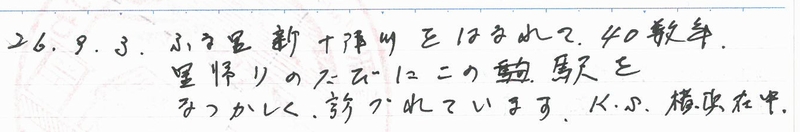 26.9.3. ふる里新十津川をはなれて、40数年、
里帰りのたびにこの駅を
なつかしく、訪づれています。K.S. 横浜在中。